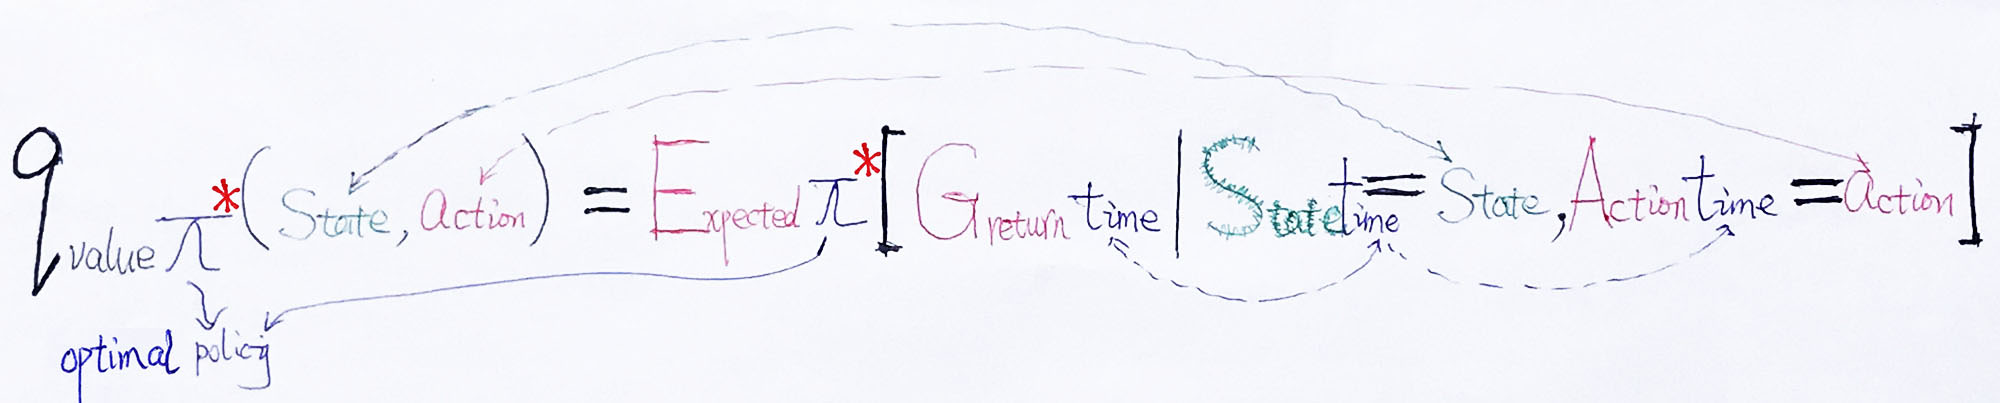 q value π*(State, action) = Expected π*[Greturn time | State time = State, Action time = action]
optimal policy